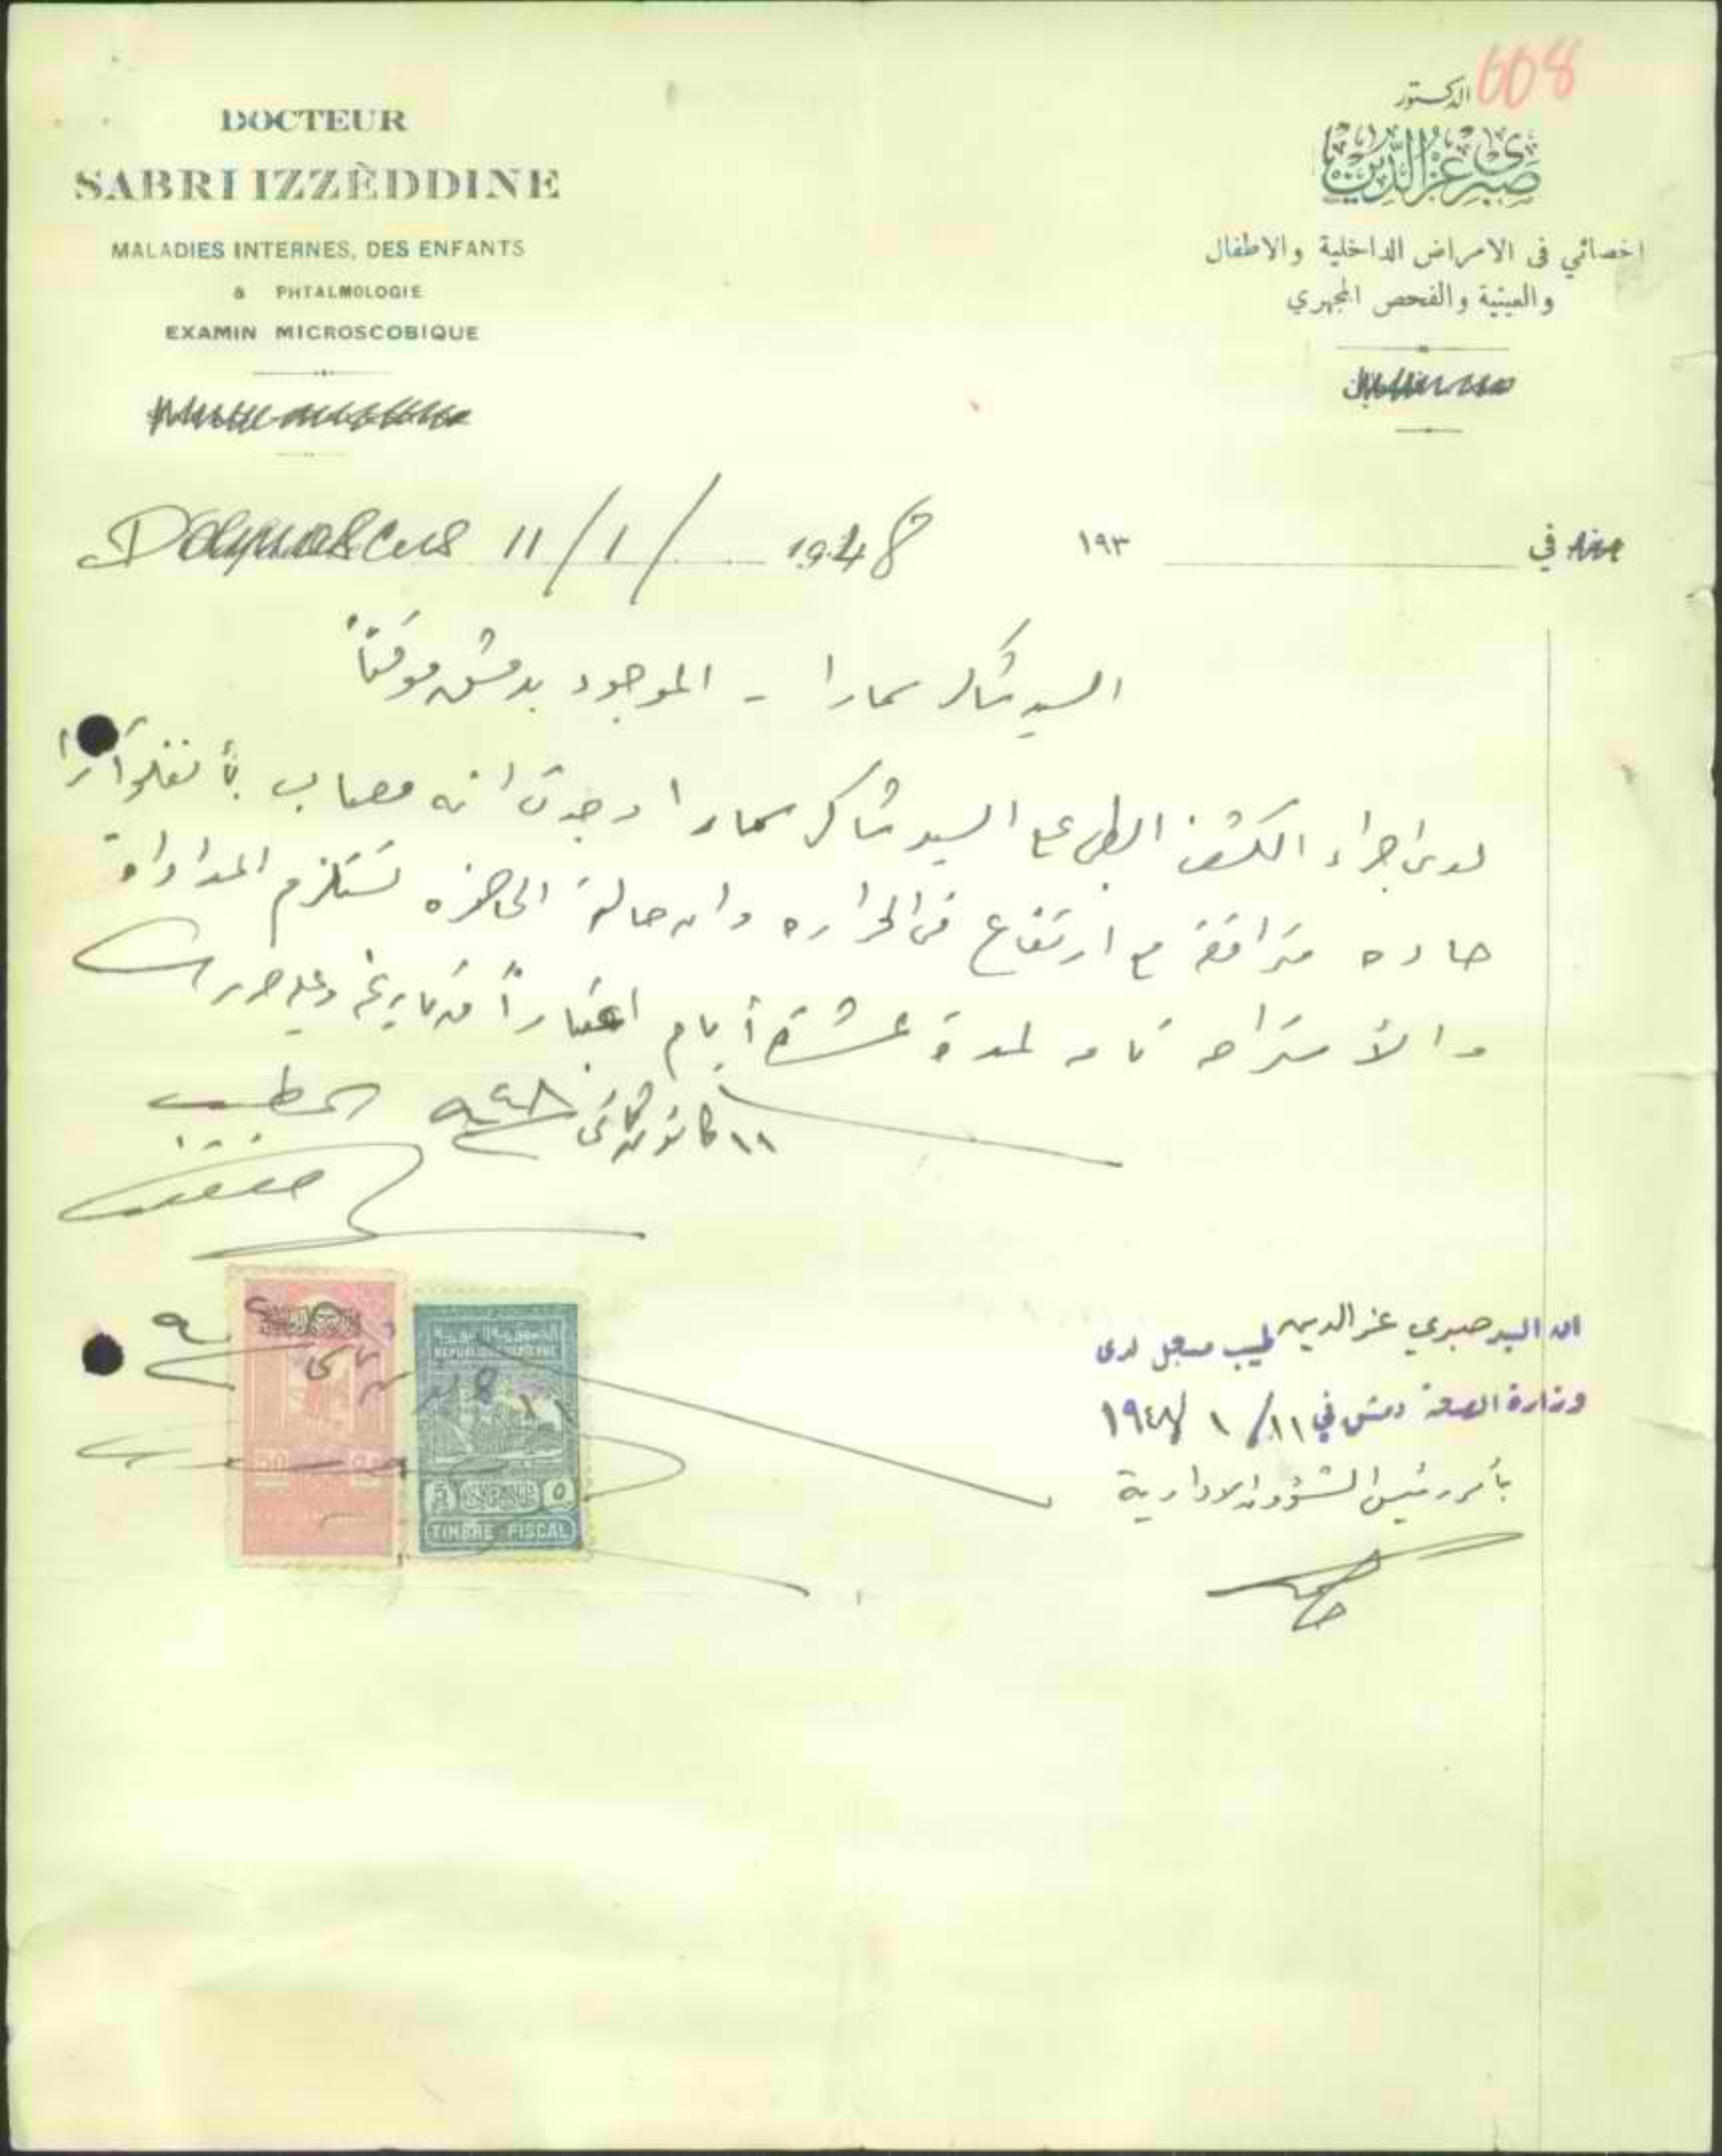 608
DOCTEUR
SABRI IZZÈDDINE
MALADIES INTERNES, DES ENFANTS
& PHTALMOLOGIE
EXAMIN MICROSCOBIQUE
الدكتور
صبري عز الدين
اخصائي في الامراض الداخلية والاطفال
والعينية والفحص المجهري
Damascus 11/1/ 1948
في ١٩٣
السيد شاكر سمارا - الموجود بدمشق موقتاً
لدى اجراء الكشف الطبي على السيد شاكر سمارا وجدت انه مصاب بأنفلونزا
حاده مترافقة مع ارتفاع في الحراره وان حالته الحاضره تستلزم المداواة
والاستراحه تامه لمدة عشرة أيام اعتباراً من تاريخه وعليه حررت
١١ كانون الثاني ٩٤٨ الطبيب
ان السيد صبري عز الدين طبيب مسجل لدى
وزارة الصحة دمشق في ١١/ ١ /١٩٤٨
بأمر رئيس الشؤون الادارية
الجمهورية السورية
REPUBLIQUE SYRIENNE
5 ٥
TIMBRE FISCAL
50